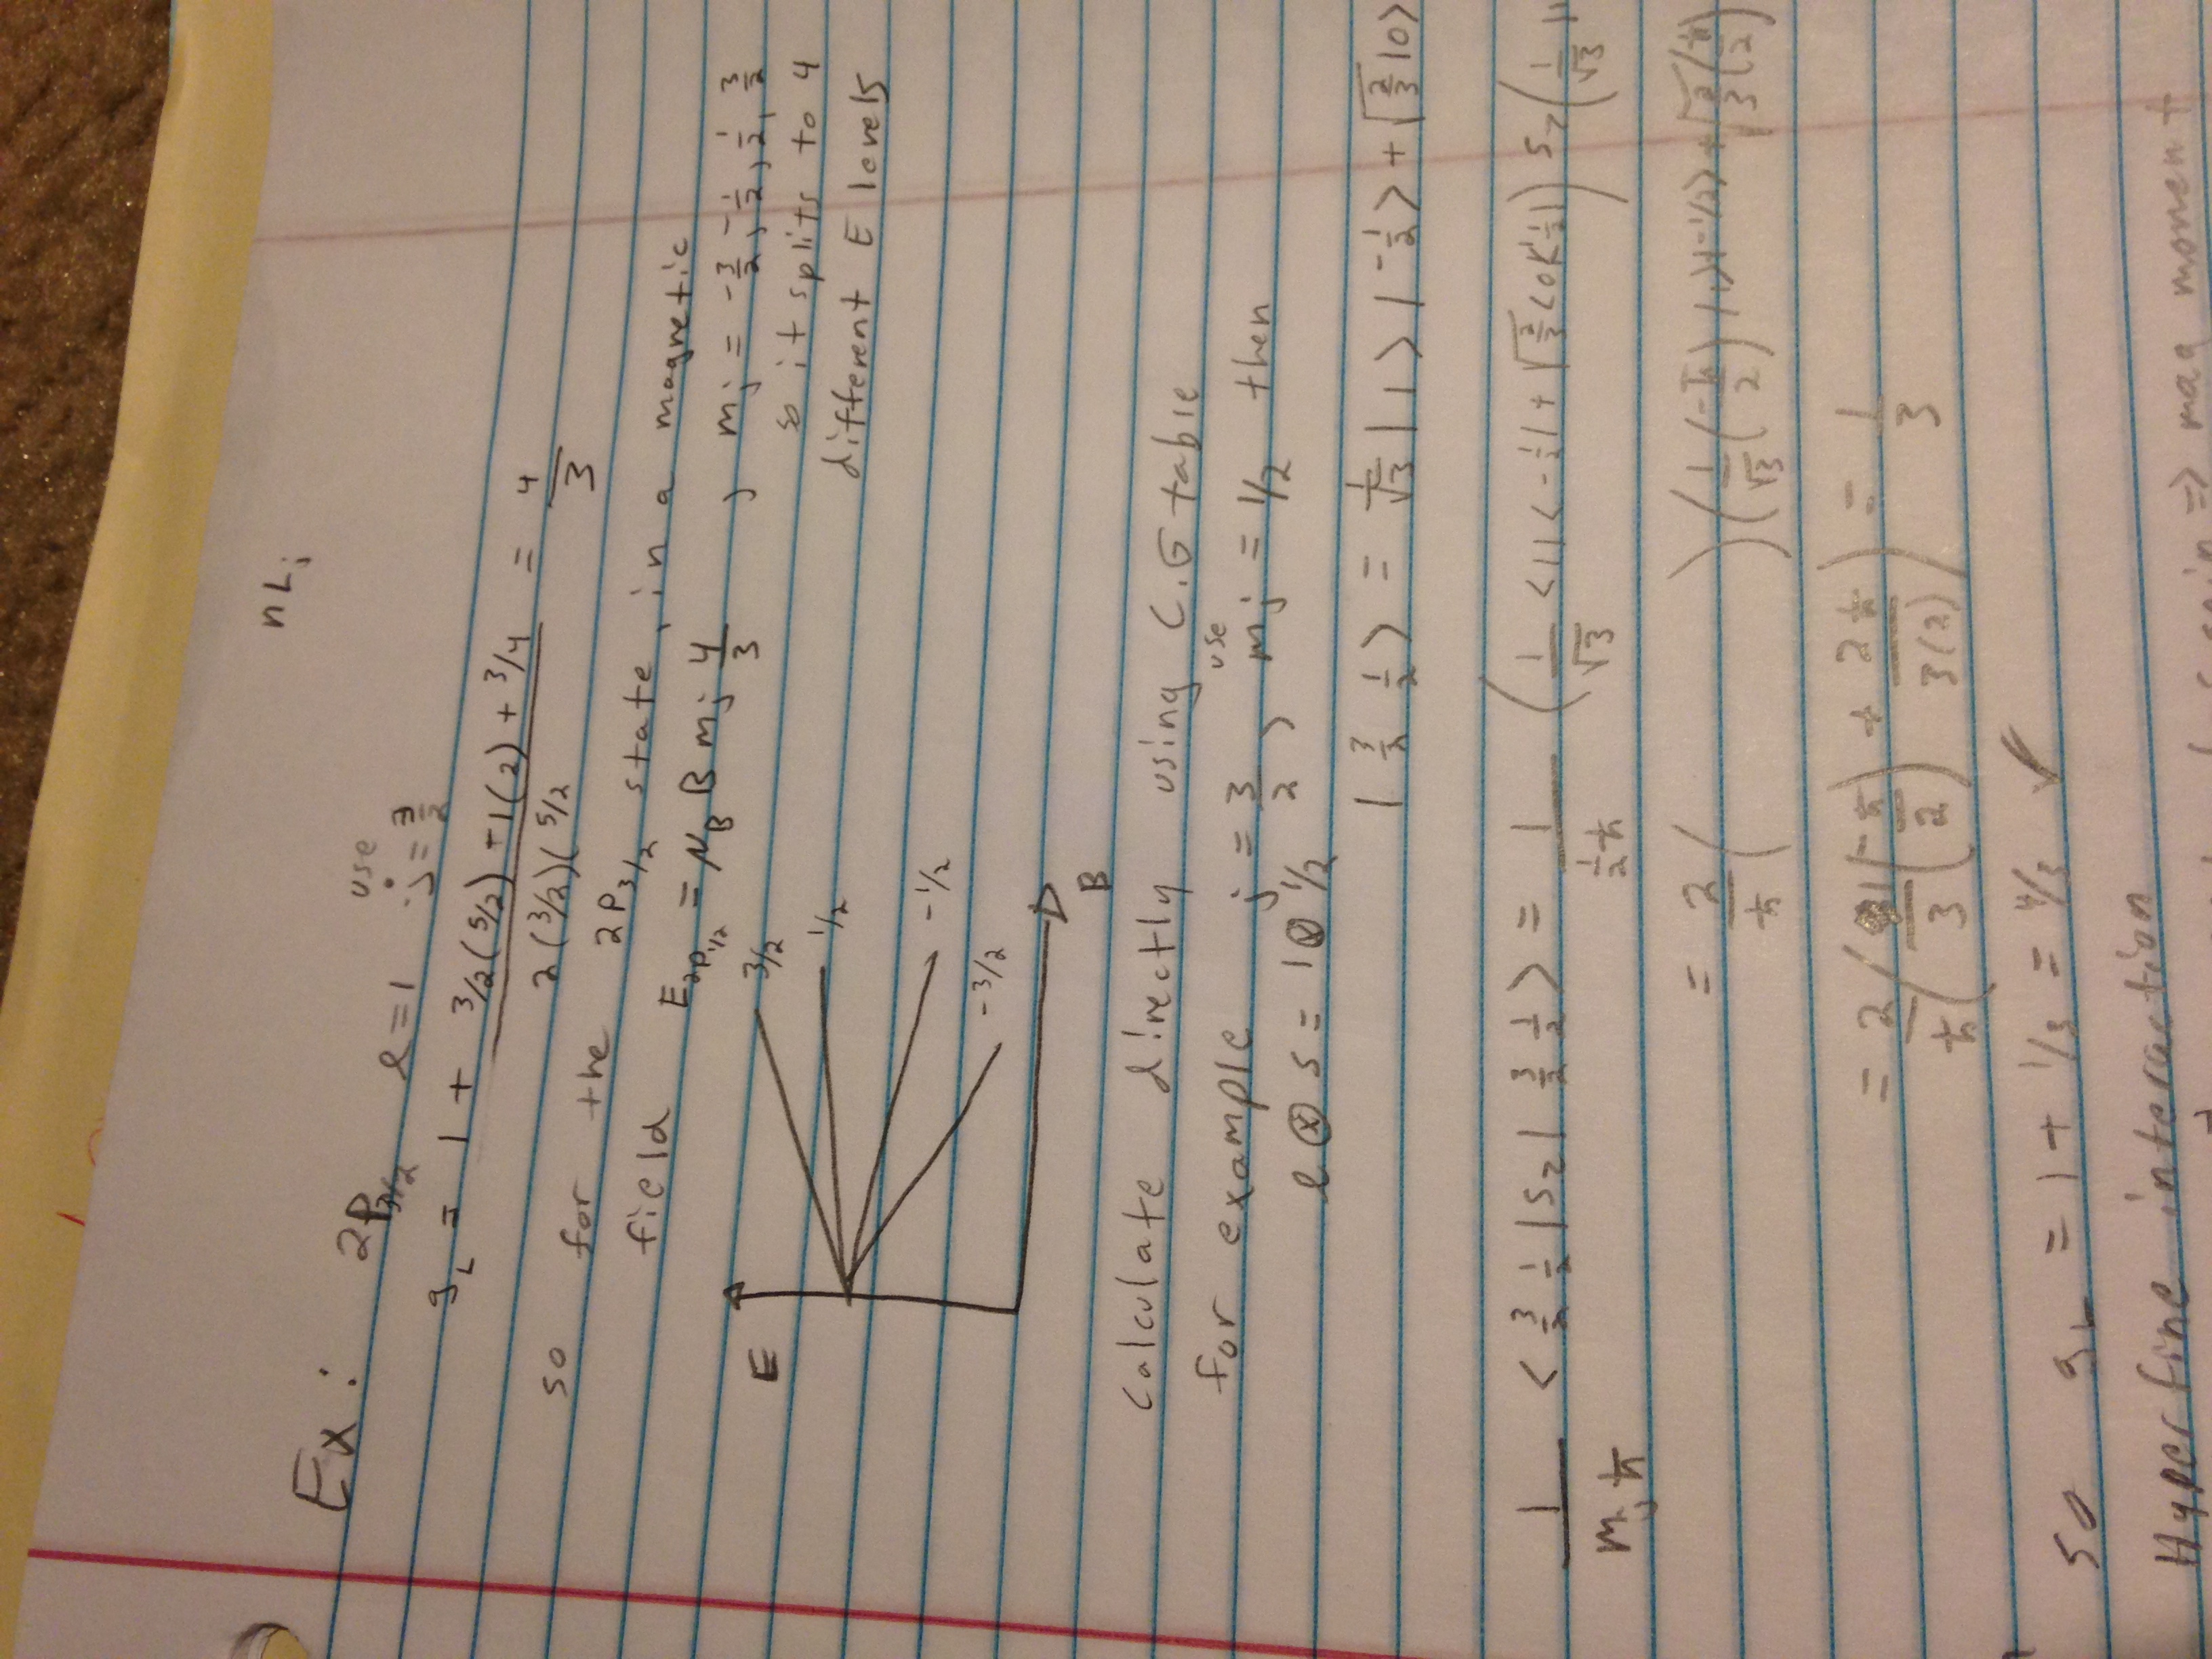 nLj
Ex: 2P3/2 l=1 use j=3/2
gL = 1 + (3/2(5/2) - 1(2) + 3/4) / (2(3/2)(5/2) = 4/3
so for the 2P3/2 state, in a magnetic
field E2P1/2 = μB B mj 4/3 , mj = -3/2, -1/2, 1/2, 3/2
so it splits to 4
different E levels
E
3/2
1/2
-1/2
-3/2
B
Calculate directly using C.G table
for example j = 3/2, use mj = 1/2 then
l ⊗ s = 1 ⊗ 1/2
|3/2 1/2> = 1/√3 |1>|-1/2> + √(2/3) |0>
1/(mj ħ) <3/2 1/2|Sz|3/2 1/2> = 1/(1/2 ħ) (1/√3 <1|<-1/2| + √(2/3) <0|<1/2|) Sz (1/√3 |1
= 2/ħ ( ) (1/√3 (-ħ/2) |1>|-1/2> + √(2/3) (ħ/2)
= 2/ħ (1/3 (-ħ/2) + 2ħ/3(2)) = 1/3
so gL = 1 + 1/3 = 4/3 ✓
Hyperfine interaction
spin => mag moment